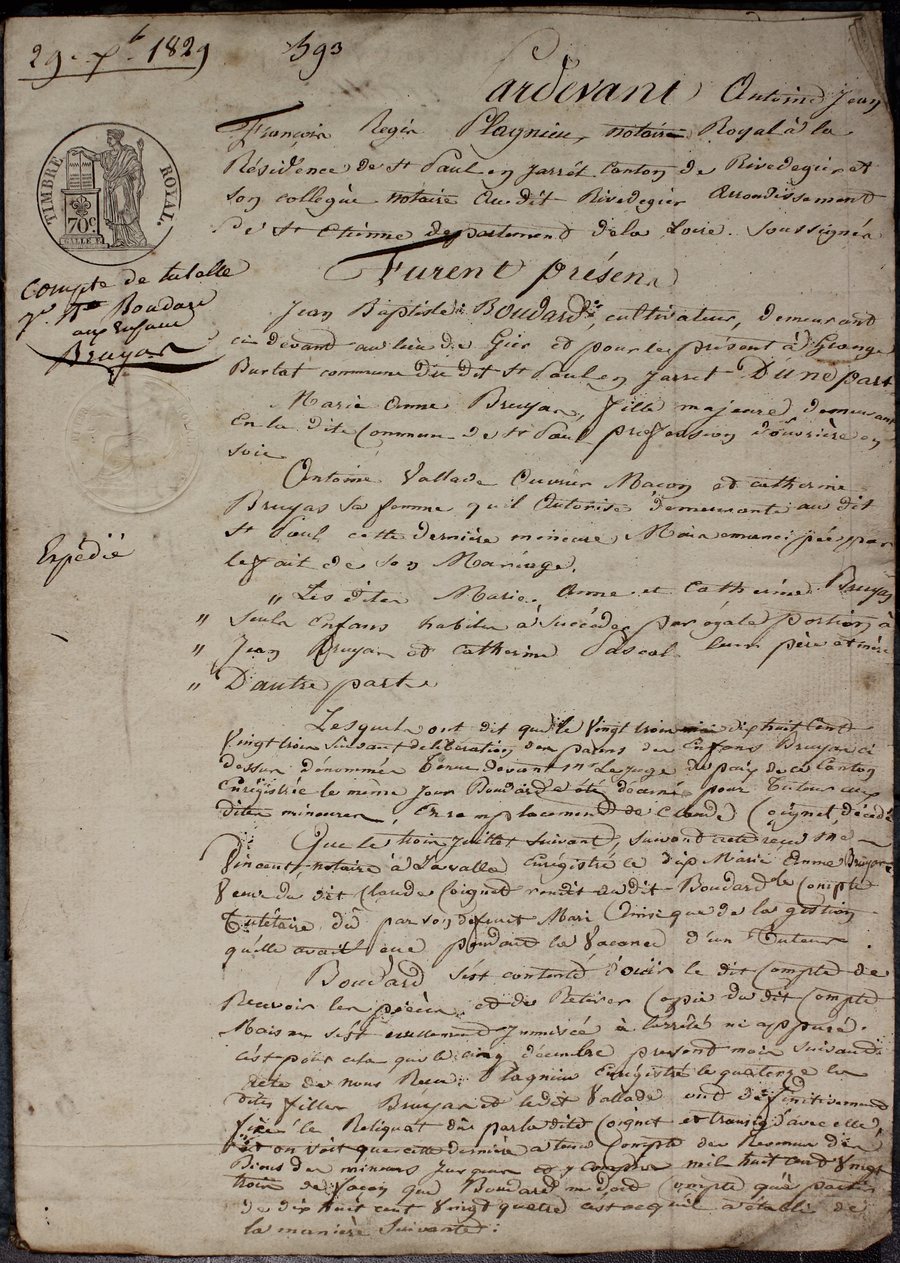 29. 7b. 1829
593
TIMBRE ROYAL.
70c.
Compte de tutelle
pr. J. Bte Boudard
aux enfans
Bruyas
Expédié
Pardevant Antoine Jean
François Regis Plagnieu, notaire Royal à la
Résidence de St Paul en Jarrêt Canton de Rivedegier et
son collègue notaire Audit Rivedegier Arrondissement
De St Etienne département de la Loire. Soussignés
Furent présens
Jean Baptiste Boudard, cultivateur, demeurant
ci devant au lieu de Gier et pour le présent à Grange
Burlat commune du dit St Paul en Jarret D'une part
Marie Anne Bruyas, fille majeure demeurant
En la dite Commune de St Paul profession d'ouvrière en
soie
Antoine Vallade Ouvrier Maçon et Catherine
Bruyas Sa femme qu'il Autorise demeurants au dit
St Paul cette dernière mineure Mais emancipée par
le fait de son Mariage.
" Les dites Marie Anne et Catherine Bruyas
" seuls Enfans habiles à succéder par égale portion à
" Jean Bruyas et Catherine Pascal leurs père et mère
" D'autre part
Lesquels ont dit que le Vingt trois dix huit Cent
Vingt trois Suivant délibération des parens des Enfans Bruyas ci
dessus dénommés tenue devant Mr Le juge de paix de ce Canton
Enregistrée le même jour Boudard a été décerné pour Tuteur aux
dites mineures, En remplacement de Claude Coignet, décédé
Que le trois Juillet suivant, suivant acte reçu Me
Vincent, notaire à Lavalla Enregistré le dix Marie Anne Bruyas
Veuve du dit Claude Coignet rendit au dit Boudard le Compte
Tutélaire dû par son defunt Mari Ainsi que de la gestion
qu'elle avait eue pendant la Vacance d'un Tuteur
Boudard s'est contenté d'ouir le dit Compte de
Recevoir les pièces et de Retirer Copie du dit Compte
Mais ne s'est nullement Immiscé à l'arrêté ni appuré.
c'est pour cela que le cinq décembre présent mois suivant
acte de nous Reçu Plagnieu Enregistré le quatorze les
dites filles Bruyas et le dit Vallade ont définitivement
fixé le Reliquat dû par le dit Coignet et transigé avec elle,
et on voit que cette dernière a tenu Compte des Revenus des
Biens des mineurs jusques et y compris mil huit cent Vingt
trois de façon que Boudard ne doit Compte qu'à partir
de dix huit cent Vingt quatre est ce qu'il a établi de
la manière Suivante :